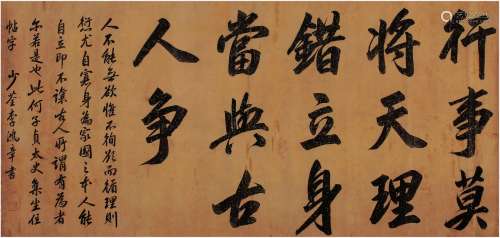 行事莫
將天理
錯立身
當與古
人争
人不能無欲惟不徇欲而循理則
愆尤自寡身為家國之本人能
自立即不讓古人所謂有為者
亦若是也此何子貞太史集坐位
帖字 少荃李鴻章書